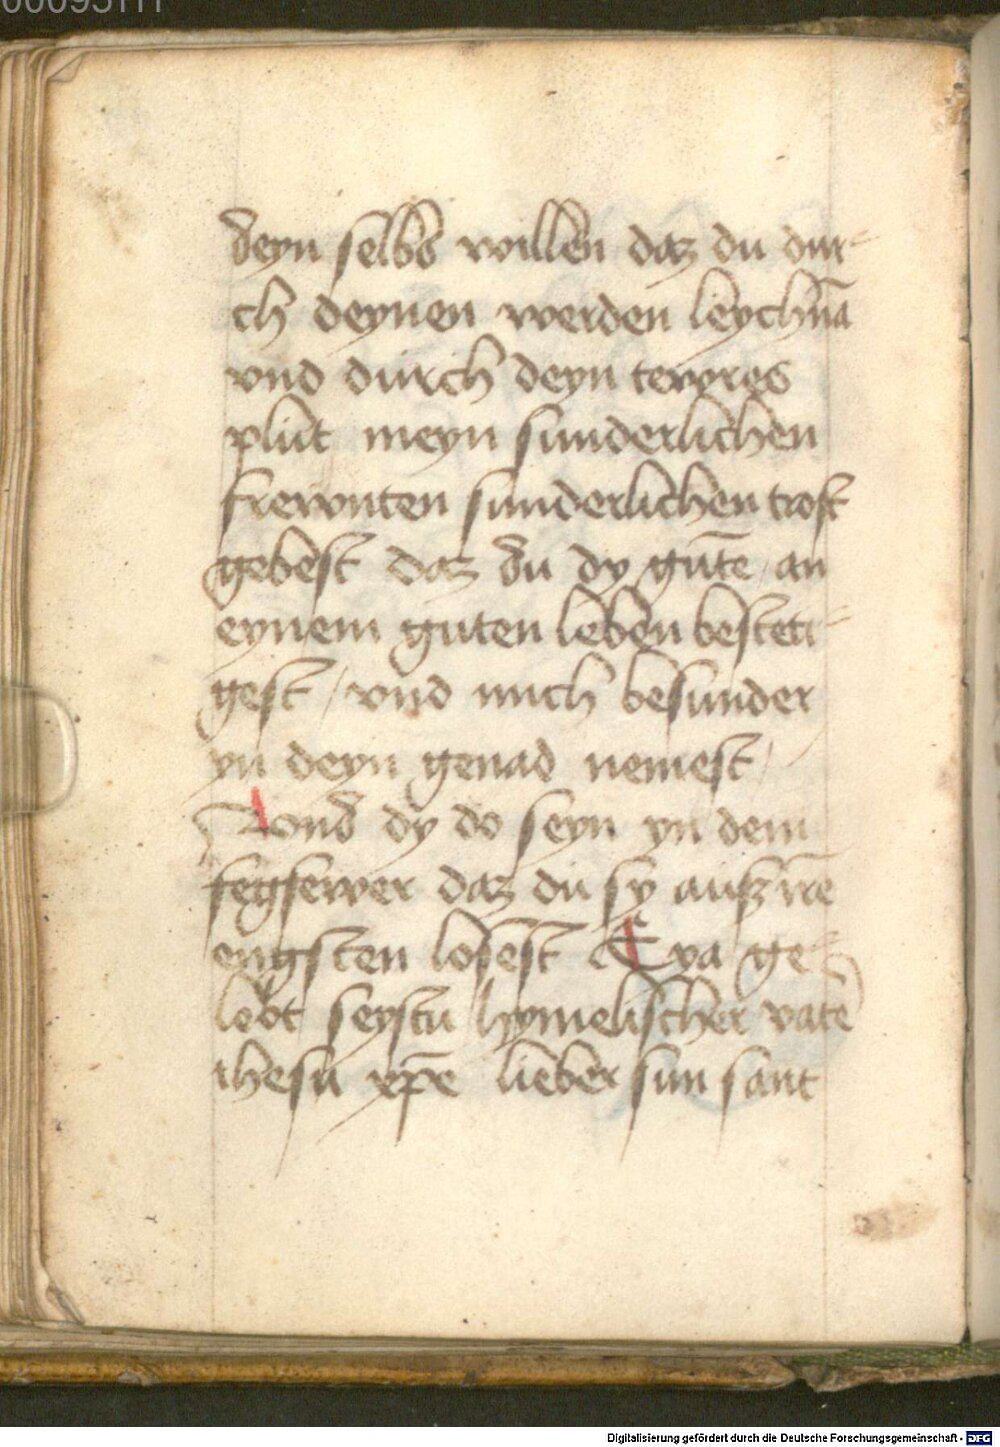 deyn selbs willen daz du dur-
ch deynen werden leychnā
vnd durch deyn tewres
plut meyn sunderlichen
frewnten sunderlichen trost
gebest daz du dy gute / an
eynem guten leben besteti-
gest / vnd mich besunder
yn deyn genad nemest /
Vnd dy do seyn yn dem
fegfewer daz du sy ausz irē
engsten losest Eya ge-
lobt seystu hymelischer vat̄e
ihesu xp̄e lieber sun sant
Digitalisierung gefördert durch die Deutsche Forschungsgemeinschaft - DFG